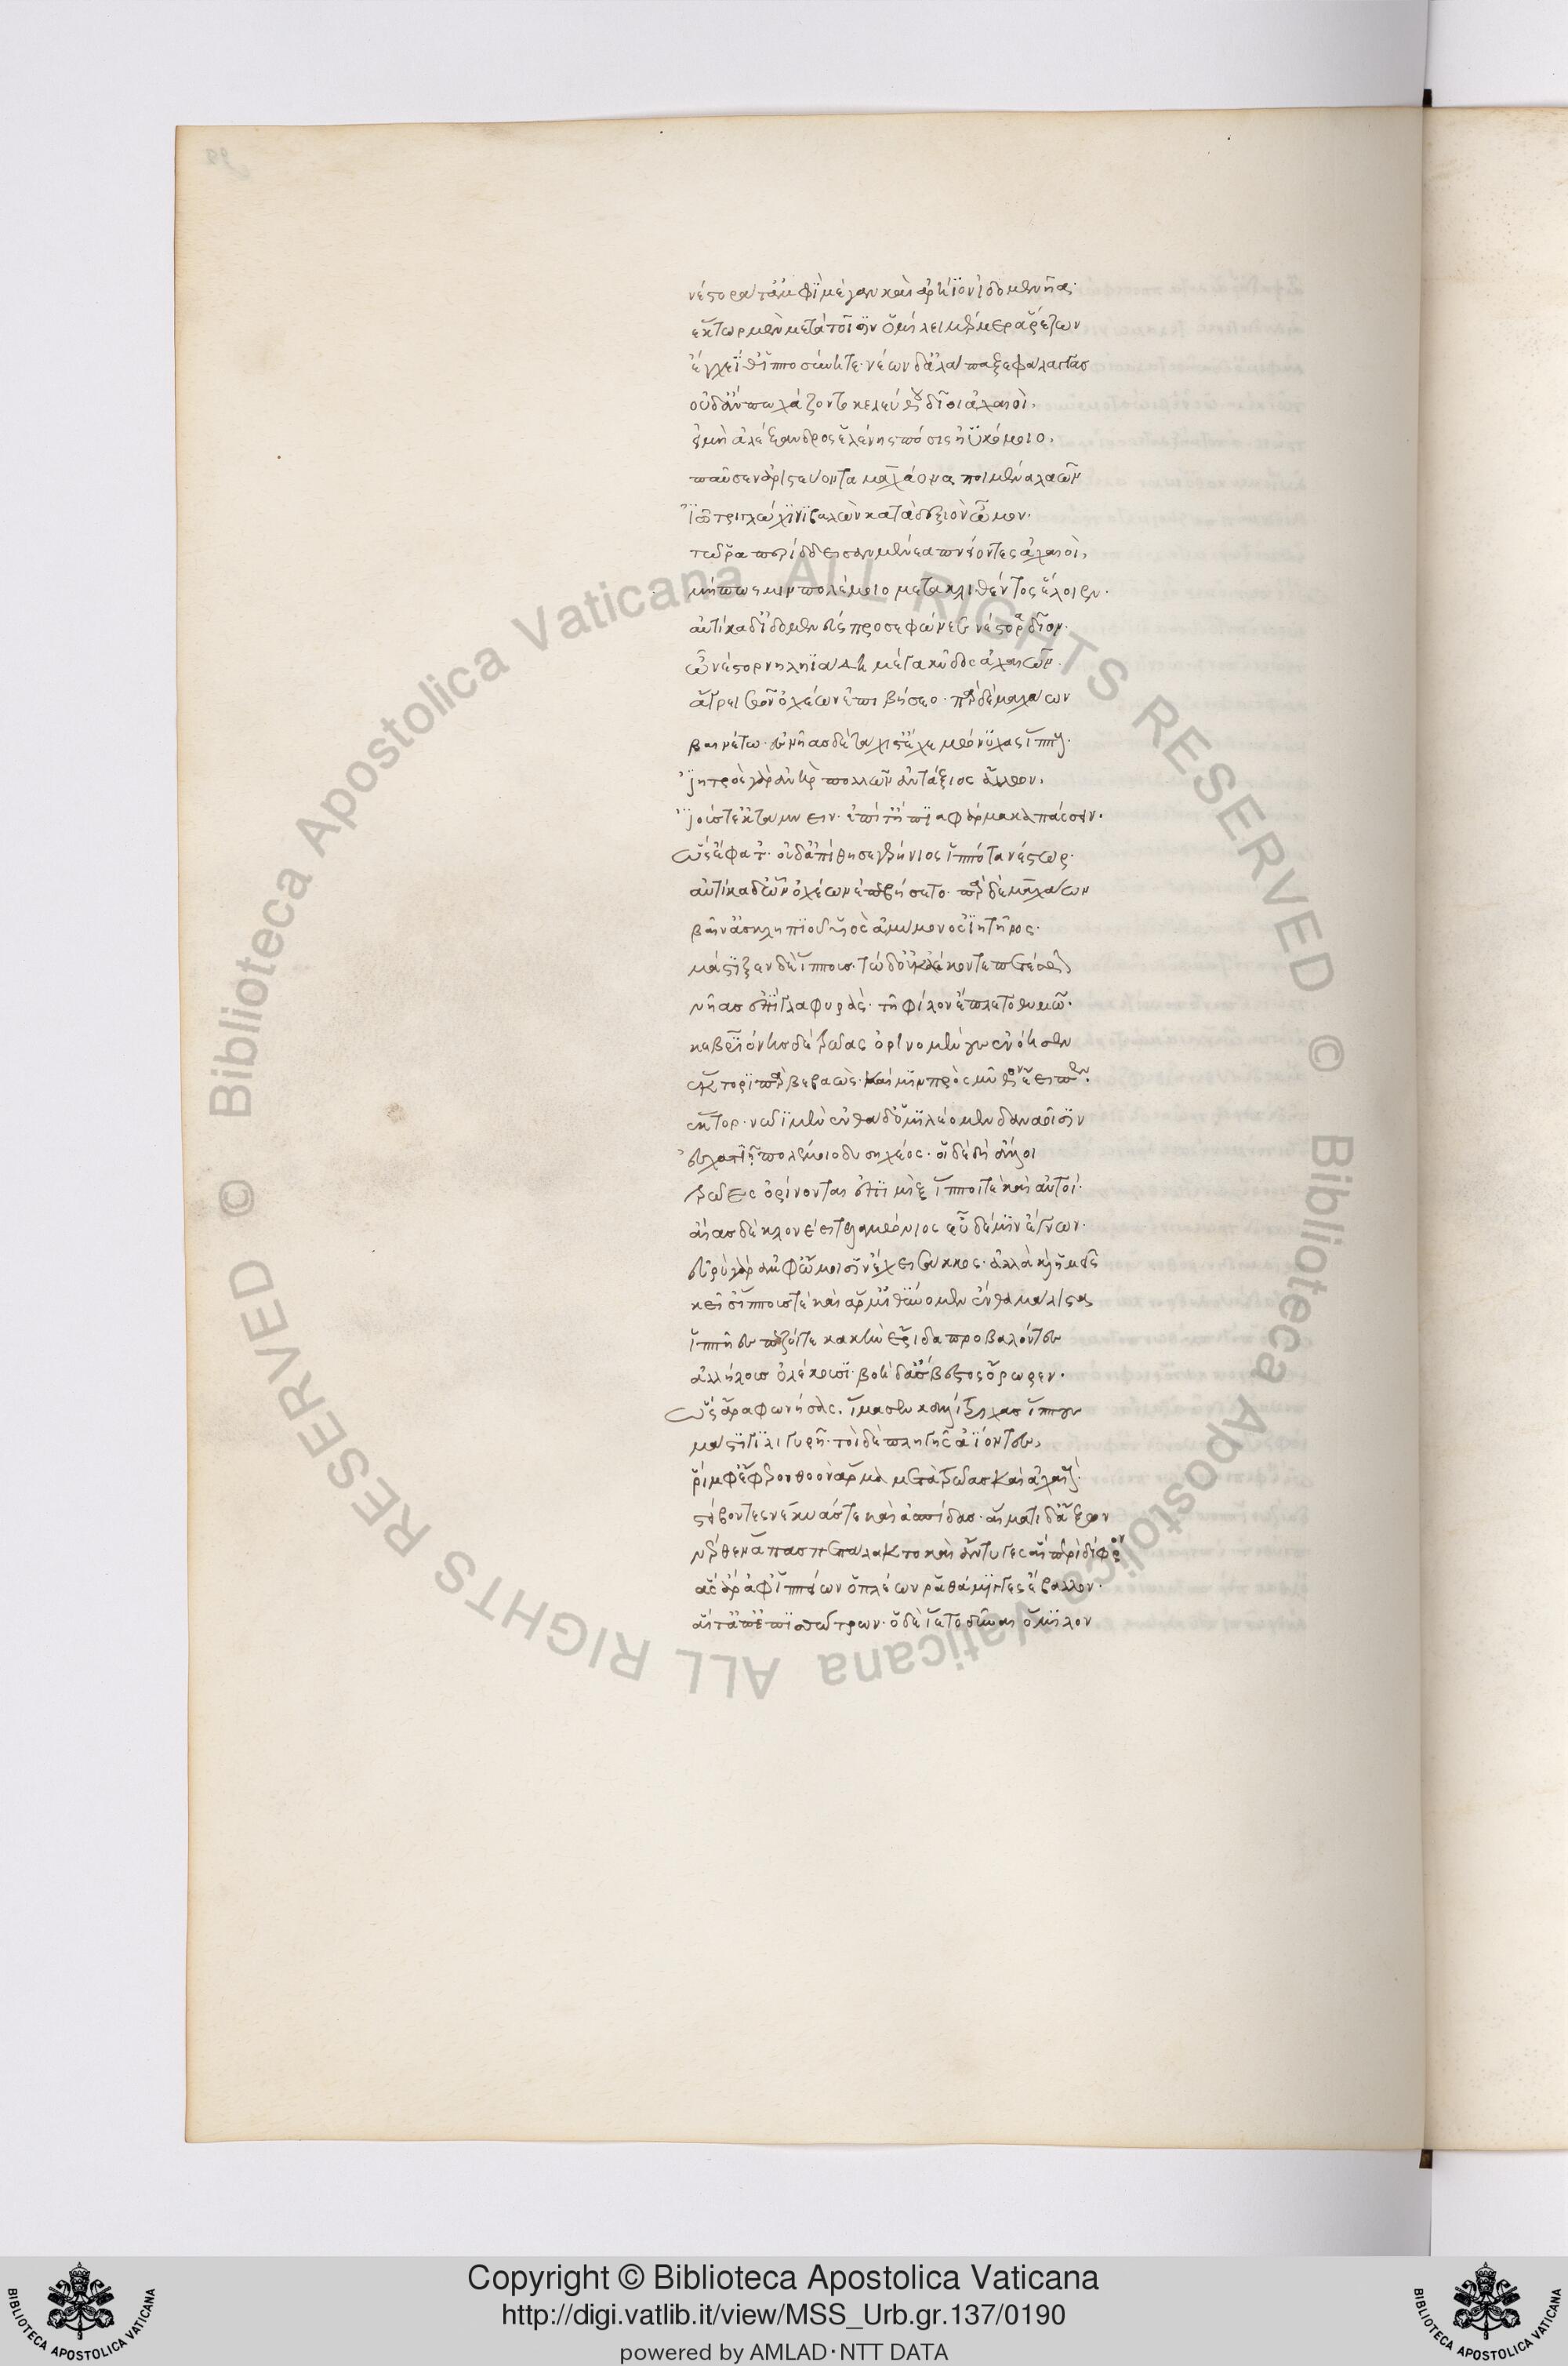 νέστορά τ' ἀμφὶ μέγαν καὶ ἀρήϊον ἰδομενῆα·
ἕκτωρ μὲν μετὰ τοῖσιν ὁμίλει μέρμερα ῥέζων
ἔγχεΐ θ' ἱπποσύνη τε· νέων δ' ἀλάπαξε φάλαγγας
οὐδ' ἄν πω χάζοντο κελεύθου δῖοι ἀχαιοὶ,
εἰ μὴ ἀλέξανδρος ἑλένης πόσις ἠϋκόμοιο,
παῦσεν ἀριστεύοντα μαχάονα ποιμένα λαῶν
ἰῶ τριγλώχινι βαλὼν κατὰ δεξιὸν ὦμον·
τῶ ῥα περίδδεισαν μένεα πνείοντες ἀχαιοὶ,
μήπως μιν πολέμοιο μετακλινθέντος ἕλοιεν·
αὐτίκα δ' ἰδομενεὺς προσεφώνεε νέστορα δῖον·
ὦ νέστορ νηληϊάδη μέγα κῦδος ἀχαιῶν·
ἄγρει σῶν ὀχέων ἐπιβήσεο· παρ δὲ μαχάων
βαινέτω· ἐς νῆας δὲ τάχιστ' ἔχε μώνυχας ἵππους·
ἰητρὸς γὰρ ἀνὴρ πολλῶν ἀντάξιος ἄλλων,
ἰούς τ' ἐκτάμνειν· ἐπί τ' ἤπια φάρμακα πάσσειν·
ὣς ἔφατ'· οὐδ' ἀπίθησε γερήνιος ἱππότα νέστωρ·
αὐτίκα δ' ὧν ὀχέων ἐπεβήσετο· παρ δὲ μαχάων
βαῖν' ἀσκληπιοῦ υἱὸς ἀμύμονος ἰητῆρος·
μάστιξεν δὲ ἵππους· τὼ δ' οὐκ ἀέκοντε πετέσθην
νῆας ἔπι γλαφυράς· τῆ φίλον ἔπλετο θυμῶ·
κεβριόνης δὲ τρῶας ὀρινομένους ἐνόησεν
ἕκτορι παρβεβαώς· καί μιν πρὸς μῦθον ἔειπεν·
ἕκτορ· νῶϊ μὲν ἐνθάδ' ὁμιλέομεν δαναοῖσιν
ἐσχατιῆ πολέμοιο δυσηχέος· οἱ δὲ δὴ ἄλλοι
τρῶες ὀρίνονται ἐπιμὶξ ἵπποι τε καὶ αὐτοί·
αἴας δὲ κλονέει τελαμώνιος εὖ δέ μιν ἔγνων·
εὐρὺ γὰρ ἀμφ' ὤμοισιν ἔχει σάκος· ἀλλὰ καὶ ἡμεῖς
κεῖσ' ἵππους τε καὶ ἅρμ' ἰθύνομεν ἔνθα μάλιστα
ἱππῆες πεζοί τε κακὴν ἔριδα προβαλόντες
ἀλλήλους ὀλέκουσι· βοὴ δ' ἄσβεστος ὄρωρεν·
ὣς ἄρα φωνήσας, ἵμασεν καλλίτριχας ἵππους
μάστιγι λιγυρῆ· τοὶ δὲ πληγῆς ἀΐοντες,
ῥίμφ' ἔφερον θοὸν ἅρμα μετὰ τρῶας καὶ ἀχαιούς·
στείβοντες νέκυάς τε καὶ ἀσπίδας· αἵματι δ' ἄξων
νέρθεν ἅπας πεπάλακτο καὶ ἄντυγες αἳ περὶ δίφρον
ἃς ἄρ' ἀφ' ἱππείων ὁπλέων ῥαθάμιγγες ἔβαλλον·
αἵ τ' ἀπ' ἐπισσώτρων· ὁ δὲ ἵετο δῦναι ὅμιλον
Copyright © Biblioteca Apostolica Vaticana
http://digi.vatlib.it/view/MSS_Urb.gr.137/0190
powered by AMLAD·NTT DATA